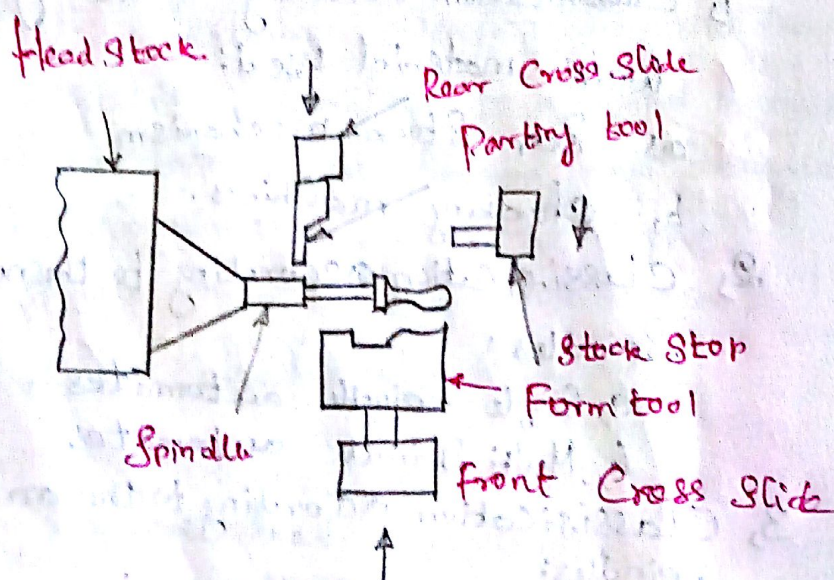 Head Stock.
Rear Cross Slide
Parting tool
Stock Stop
Form tool
Spindle
Front Cross Slide